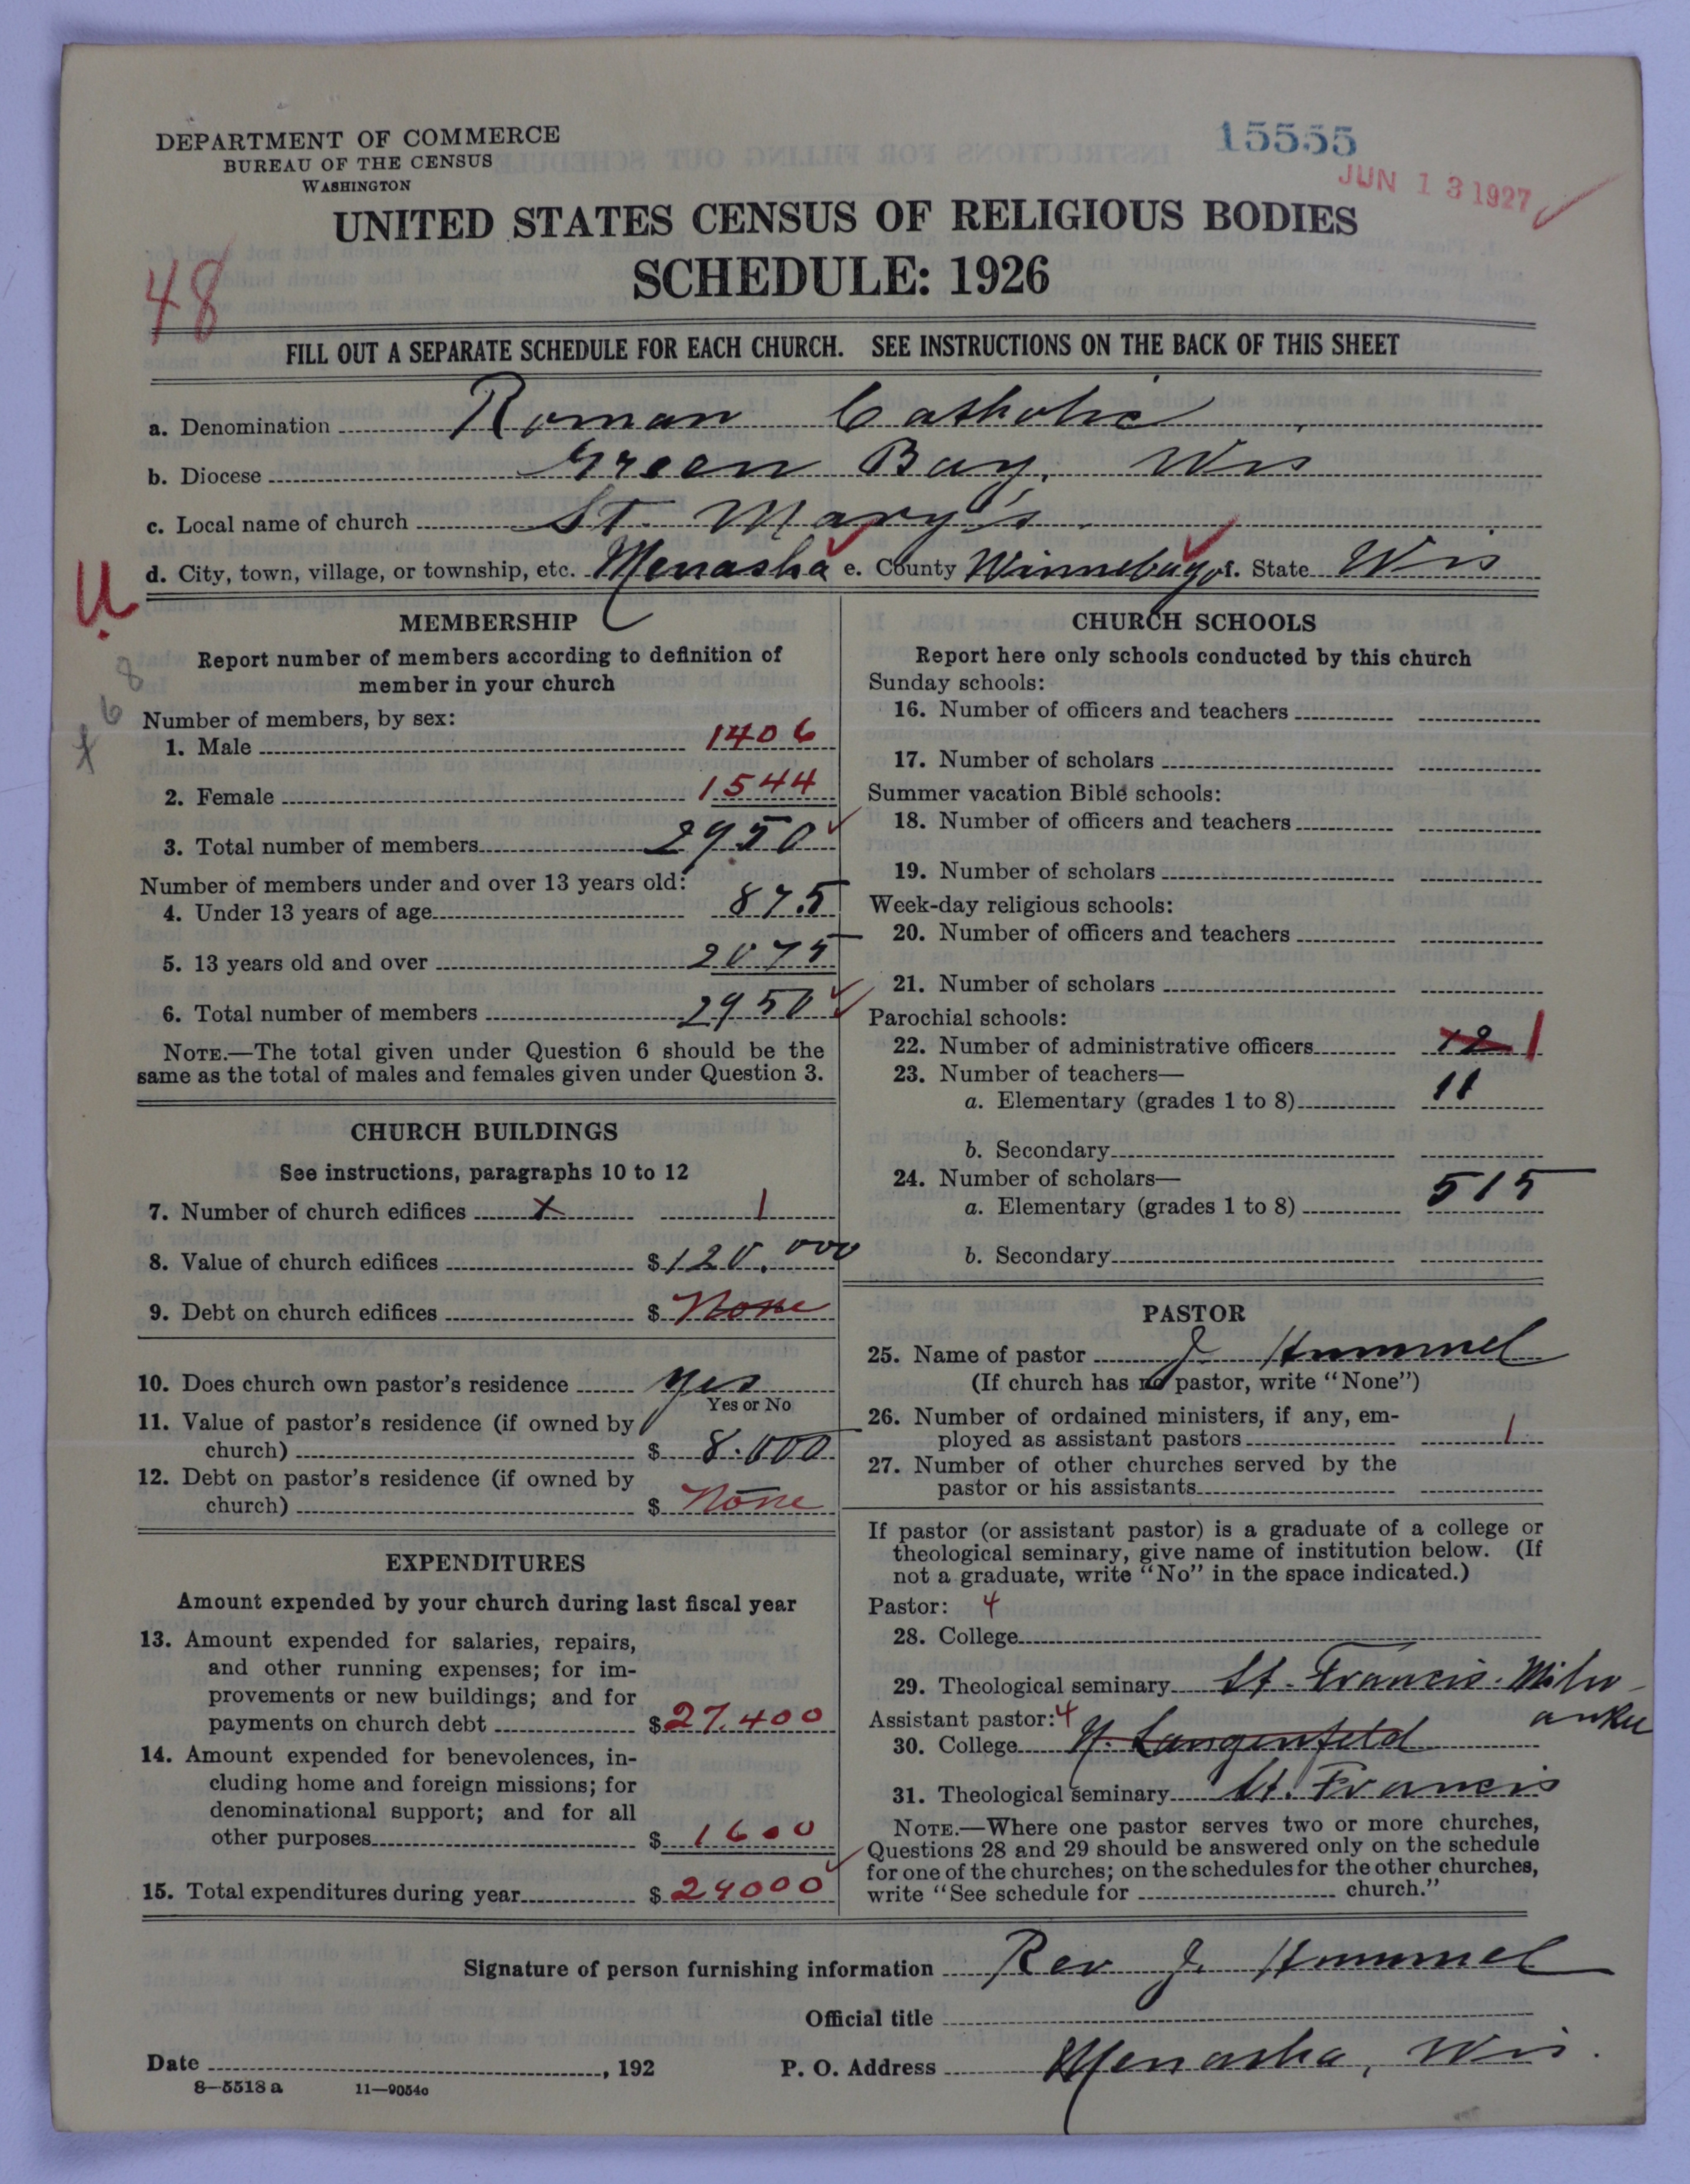 DEPARTMENT OF COMMERCE
BUREAU OF THE CENSUS
WASHINGTON
15555
JUN 13 1927
UNITED STATES CENSUS OF RELIGIOUS BODIES
SCHEDULE: 1926
48
FILL OUT A SEPARATE SCHEDULE FOR EACH CHURCH. SEE INSTRUCTIONS ON THE BACK OF THIS SHEET
a. Denomination Roman Catholic
b. Diocese Green Bay, Wis
c. Local name of church St. Mary's
d. City, town, village, or township, etc. Menasha e. County Winnebago f. State Wis
U
MEMBERSHIP
Report number of members according to definition of
member in your church
8
6
x
Number of members, by sex:
1. Male 1406
2. Female 1544
3. Total number of members 2950
Number of members under and over 13 years old:
4. Under 13 years of age 875
5. 13 years old and over 2075
6. Total number of members 2950
NOTE.—The total given under Question 6 should be the
same as the total of males and females given under Question 3.
CHURCH BUILDINGS
See instructions, paragraphs 10 to 12
7. Number of church edifices x 1
8. Value of church edifices $120.000
9. Debt on church edifices $ None
10. Does church own pastor's residence yes
Yes or No
11. Value of pastor's residence (if owned by
church) $ 8.000
12. Debt on pastor's residence (if owned by
church) $ None
EXPENDITURES
Amount expended by your church during last fiscal year
13. Amount expended for salaries, repairs,
and other running expenses; for im-
provements or new buildings; and for
payments on church debt $27.400
14. Amount expended for benevolences, in-
cluding home and foreign missions; for
denominational support; and for all
other purposes $ 1600
15. Total expenditures during year $ 29000
CHURCH SCHOOLS
Report here only schools conducted by this church
Sunday schools:
16. Number of officers and teachers
17. Number of scholars
Summer vacation Bible schools:
18. Number of officers and teachers
19. Number of scholars
Week-day religious schools:
20. Number of officers and teachers
21. Number of scholars
Parochial schools:
22. Number of administrative officers 12 1
23. Number of teachers—
a. Elementary (grades 1 to 8) 11
b. Secondary
24. Number of scholars—
a. Elementary (grades 1 to 8) 515
b. Secondary
PASTOR
25. Name of pastor J. Hummel
(If church has no pastor, write "None")
26. Number of ordained ministers, if any, em-
ployed as assistant pastors 1
27. Number of other churches served by the
pastor or his assistants
If pastor (or assistant pastor) is a graduate of a college or
theological seminary, give name of institution below. (If
not a graduate, write "No" in the space indicated.)
Pastor: 4
28. College
29. Theological seminary St. Francis. Milw-
aukee
Assistant pastor: 4
30. College N. Langenfeld
31. Theological seminary St. Francis
NOTE.—Where one pastor serves two or more churches,
Questions 28 and 29 should be answered only on the schedule
for one of the churches; on the schedules for the other churches,
write "See schedule for church."
Signature of person furnishing information Rev J. Hummel
Official title
Date , 192
P. O. Address Menasha, Wis.
8—5518 a 11—9054c